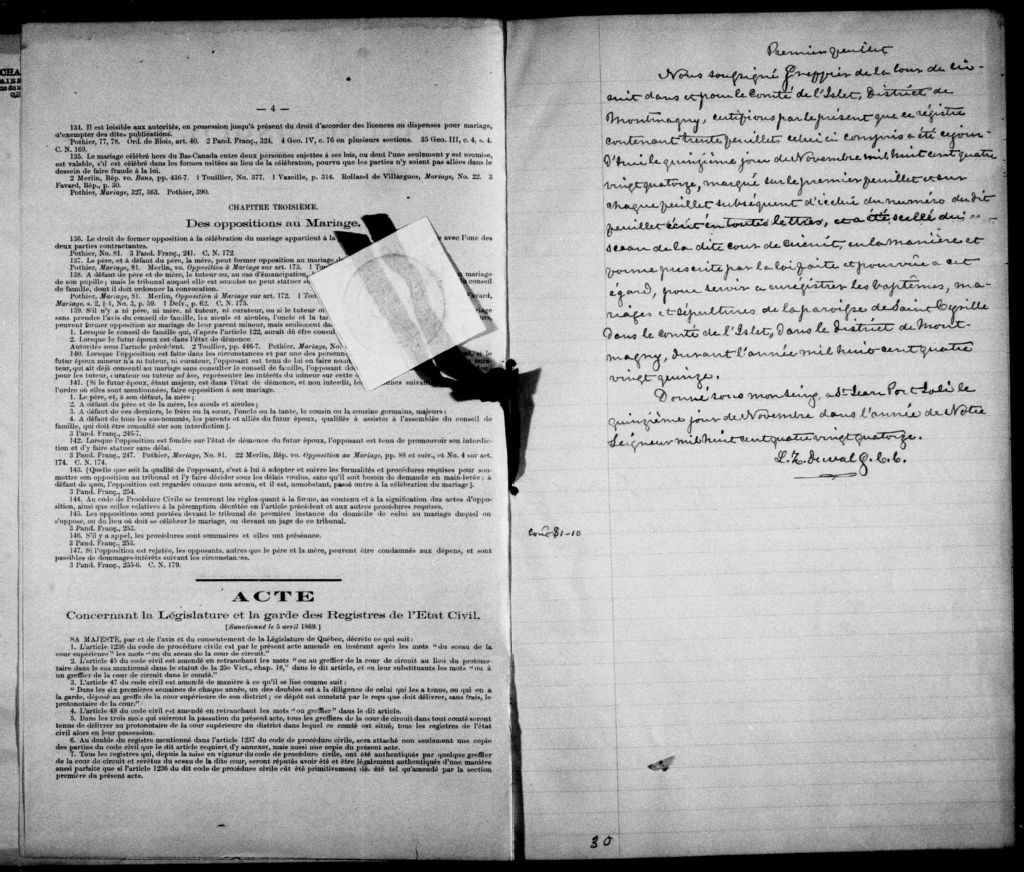 — 4 —
134. Il est loisible aux autorités, en possession jusqu'à présent du droit d'accorder des licences ou dispenses pour mariage,
d'exempter des dites publications.
Pothier, 77, 78. Ord. de Blois, art. 40. 2 Pand. Franç., 324. 4 Geo. IV, c. 76 en plusieurs sections. 35 Geo. III, c. 4, s. 4.
C. N. 169.
135. Le mariage célébré hors du Bas-Canada entre deux personnes sujettes à ses lois, ou dont l'une seulement y est soumise,
est valable, s'il est célébré dans les formes usitées au lieu de la célébration, pourvu que les parties n'y soient pas allées dans le
dessein de faire fraude à la loi.
2 Merlin, Rép. vo. Bans, pp. 436-7. 1 Touillier, No. 577. 1 Vazeille, p. 314. Rolland de Villargues, Mariage, No. 22. 3
Favard, Rép., p. 50.
Pothier, Mariage, 327, 363. Pothier, 390.
CHAPITRE TROISIÈME.
Des oppositions au Mariage.
136. Le droit de former opposition à la célébration du mariage appartient à la avec l'une des
deux parties contractantes.
Pothier, No. 81. 3 Pand. Franç., 241. C. N. 172
137. Le père, et à défaut du père, la mère, peut former opposition au mariage de
Pothier, Mariage, 81. Merlin, vo. Opposition à Mariage sur art. 173. 1
138. A défaut de père et de mère, le tuteur ou, au cas d'émancipation, mariage
de son pupille; mais le tribunal auquel elle est soumise ne peut statuer
famille, dont il doit ordonner la convocation.
Pothier, Mariage, 81. Merlin, Opposition à Mariage sur art. 172. 1 Favard,
Mariage, s. 2, § 1, No. 3, p. 59. 1 Delv., p. 62. C. N. 175.
139. S'il n'y a ni père, ni mère, ni tuteur, ni curateur, ou si le tuteur ou
sans prendre l'avis du conseil de famille, les aïeuls et aïeules, l'oncle et la
peuvent former opposition au mariage de leur parent mineur, mais seulement
1. Lorsque le conseil de famille qui, d'après l'article 122, aurait dû être
2. Lorsque le futur époux est dans l'état de démence.
Autorités sous l'article précédent. 2 Toullier, pp. 446-7. Pothier, Mariage, No.
140. Lorsque l'opposition est faite dans les circonstances et par une des si le
futur époux mineur n'a ni tuteur, ni curateur, l'opposant est tenu de lui en faire
teur, qui ait déjà consenti au mariage sans consulter le conseil de famille, l'opposant
pour les tuteur, curateur ou tuteur ad hoc, représenter les intérêts du mineur sur cette
141. [Si le futur époux, étant majeur, est dans l'état de démence, et non interdit, suivantes, dans
l'ordre où elles sont mentionnées, faire opposition à son mariage.
1. Le père, et, à son défaut, la mère;
2. A défaut du père et de la mère, les aïeuls et aïeules;
3. A défaut de ces derniers, le frère ou la sœur, l'oncle ou la tante, le cousin ou la cousine germains, majeurs;
4. A défaut de tous les sus-nommés, les parents et alliés du futur époux, qualifiés à assister à l'assemblée du conseil de
famille, qui doit être consulté sur son interdiction].
3 Pand. Franç., 246-7.
142. Lorsque l'opposition est fondée sur l'état de démence du futur époux, l'opposant est tenu de promouvoir son interdic-
tion et d'y faire statuer sans délai.
3 Pand. Franç., 247. Pothier, Mariage, No. 81. 22 Merlin, Rép. vo. Opposition au Mariage, pp. 88 et suiv., et No. 4 sur art.
174. C. N. 174.
143. [Quelle que soit la qualité de l'opposant, c'est à lui à adopter et suivre les formalités et procédures requises pour sou-
mettre son opposition au tribunal et l'y faire décider sous les délais voulus, sans qu'il soit besoin de demande en main-levée; à
défaut de quoi, l'opposition est regardée comme non avenu, et il est, nonobstant, passé outre à la célébration du mariage].
3 Pand. Franç., 254.
144. Au code de Procédure Civile se trouvent les règles quant à la forme, au contenu et à la signification des actes d'oppo-
sition, ainsi que celles relatives à la péremption décrétée en l'article précédent et aux autres procédures requises.
145. Les oppositions sont portées devant le tribunal de première instance du domicile de celui au mariage duquel on
s'oppose, ou du lieu où doit se célébrer le mariage, ou devant un juge de ce tribunal.
3 Pand. Franç., 253.
146. S'il y a appel, les procédures sont sommaires et elles ont préséance.
3 Pand. Franç., 253.
147. Si l'opposition est rejetée, les opposants, autres que le père et la mère, peuvent être condamnés aux dépens, et sont
passibles de dommages-intérêts suivant les circonstances.
3 Pand. Franç., 255-6. C. N. 179.
ACTE
Concernant la Législature et la garde des Registres de l'Etat Civil.
[Sanctionné le 5 avril 1869.]
SA MAJESTE, par et de l'avis et du consentement de la Législature de Québec, décrète ce qui suit:
1. L'article 1236 du code de procédure civile est par le présent acte amendé en insérant après les mots "du sceau de la
cour supérieure" les mots "ou du sceau de la cour de circuit."
2. L'article 45 du code civil est amendé en retranchant les mots "ou au greffier de la cour de circuit au lieu du protono-
taire dans le cas mentionné dans le statut de la 25e Vict., chap. 16," dans le dit article, et en leur substituants les mots "ou à
un greffier de la cour de circuit dans le comté."
3. L'article 47 du code civil est amendé de manière à ce qu'il se lise comme suit:
"Dans les six premières semaines de chaque année, un des doubles est à la diligence de celui qui les a tenus, ou qui en a
la garde, déposé au greffe de la cour supérieure de son district; ce dépôt est constaté par le reçu que doit délivrer, sans frais, le
protonotaire de la cour."
4. L'article 48 du code civil est amendé en retranchant les mots "ou greffier" dans le dit article.
5. Dans les trois mois qui suivront la passation du présent acte, tous les greffiers de la cour de circuit dans tout comté seront
tenus de délivrer au protonotaire de la cour supérieure du district dans lequel ce comté est situé, tous les registres de l'état
civil alors en leur possession.
6. Au double du registre mentionné dans l'article 1237 du code de procédure civile, sera attaché non seulement une copie
des parties du code civil que le dit article requiert d'y annexer, mais aussi une copie du présent acte.
7. Tous les registres qui, depuis la mise en vigueur du code de procédure civile, ont été authentiqués par quelque greffier
de la cour de circuit et revêtus du sceau de la dite cour, seront réputés avoir été et être légalement authentiqués d'une manière
aussi parfaite que si l'article 1236 du dit code de procédure civile eût été primitivement dé été tel qu'amendé par la section
première du présent acte.
Premier feuillet
Nous soussigné Greffier de la Cour de Cir-
cuit dans et pour le Comté de l'Islet, District de
Montmagny, certifions par le présent que ce régistre
contenant trente feuillets celui ci compris a été ce jour-
d'hui le quinzième jour de Novembre mil huit cent quatre
vingt quatorze, marqué sur le premier feuillet et sur
chaque feuillet subséquent d'icelui du numéro du dit
feuillet écrit en toutes lettres, et a été scellé du
sceau de la dite cour de Circuit, en la manière et
forme prescrite par la loi faite et pourvue à cet
égard, pour servir à enrégistrer les baptêmes, ma-
riages et sépultures de la paroisse de Saint Cyrille
dans le comté de l'Islet, dans le district de Mont-
magny, durant l'année mil huit cent quatre
vingt quinze.
Donné sous mon seing, à St Jean Port Joli le
quinzième jour de Novembre dans l'année de Notre
Seigneur mil huit cent quatre vingt quatorze.
L. Z. Duval G. C. C.
$1-10
30